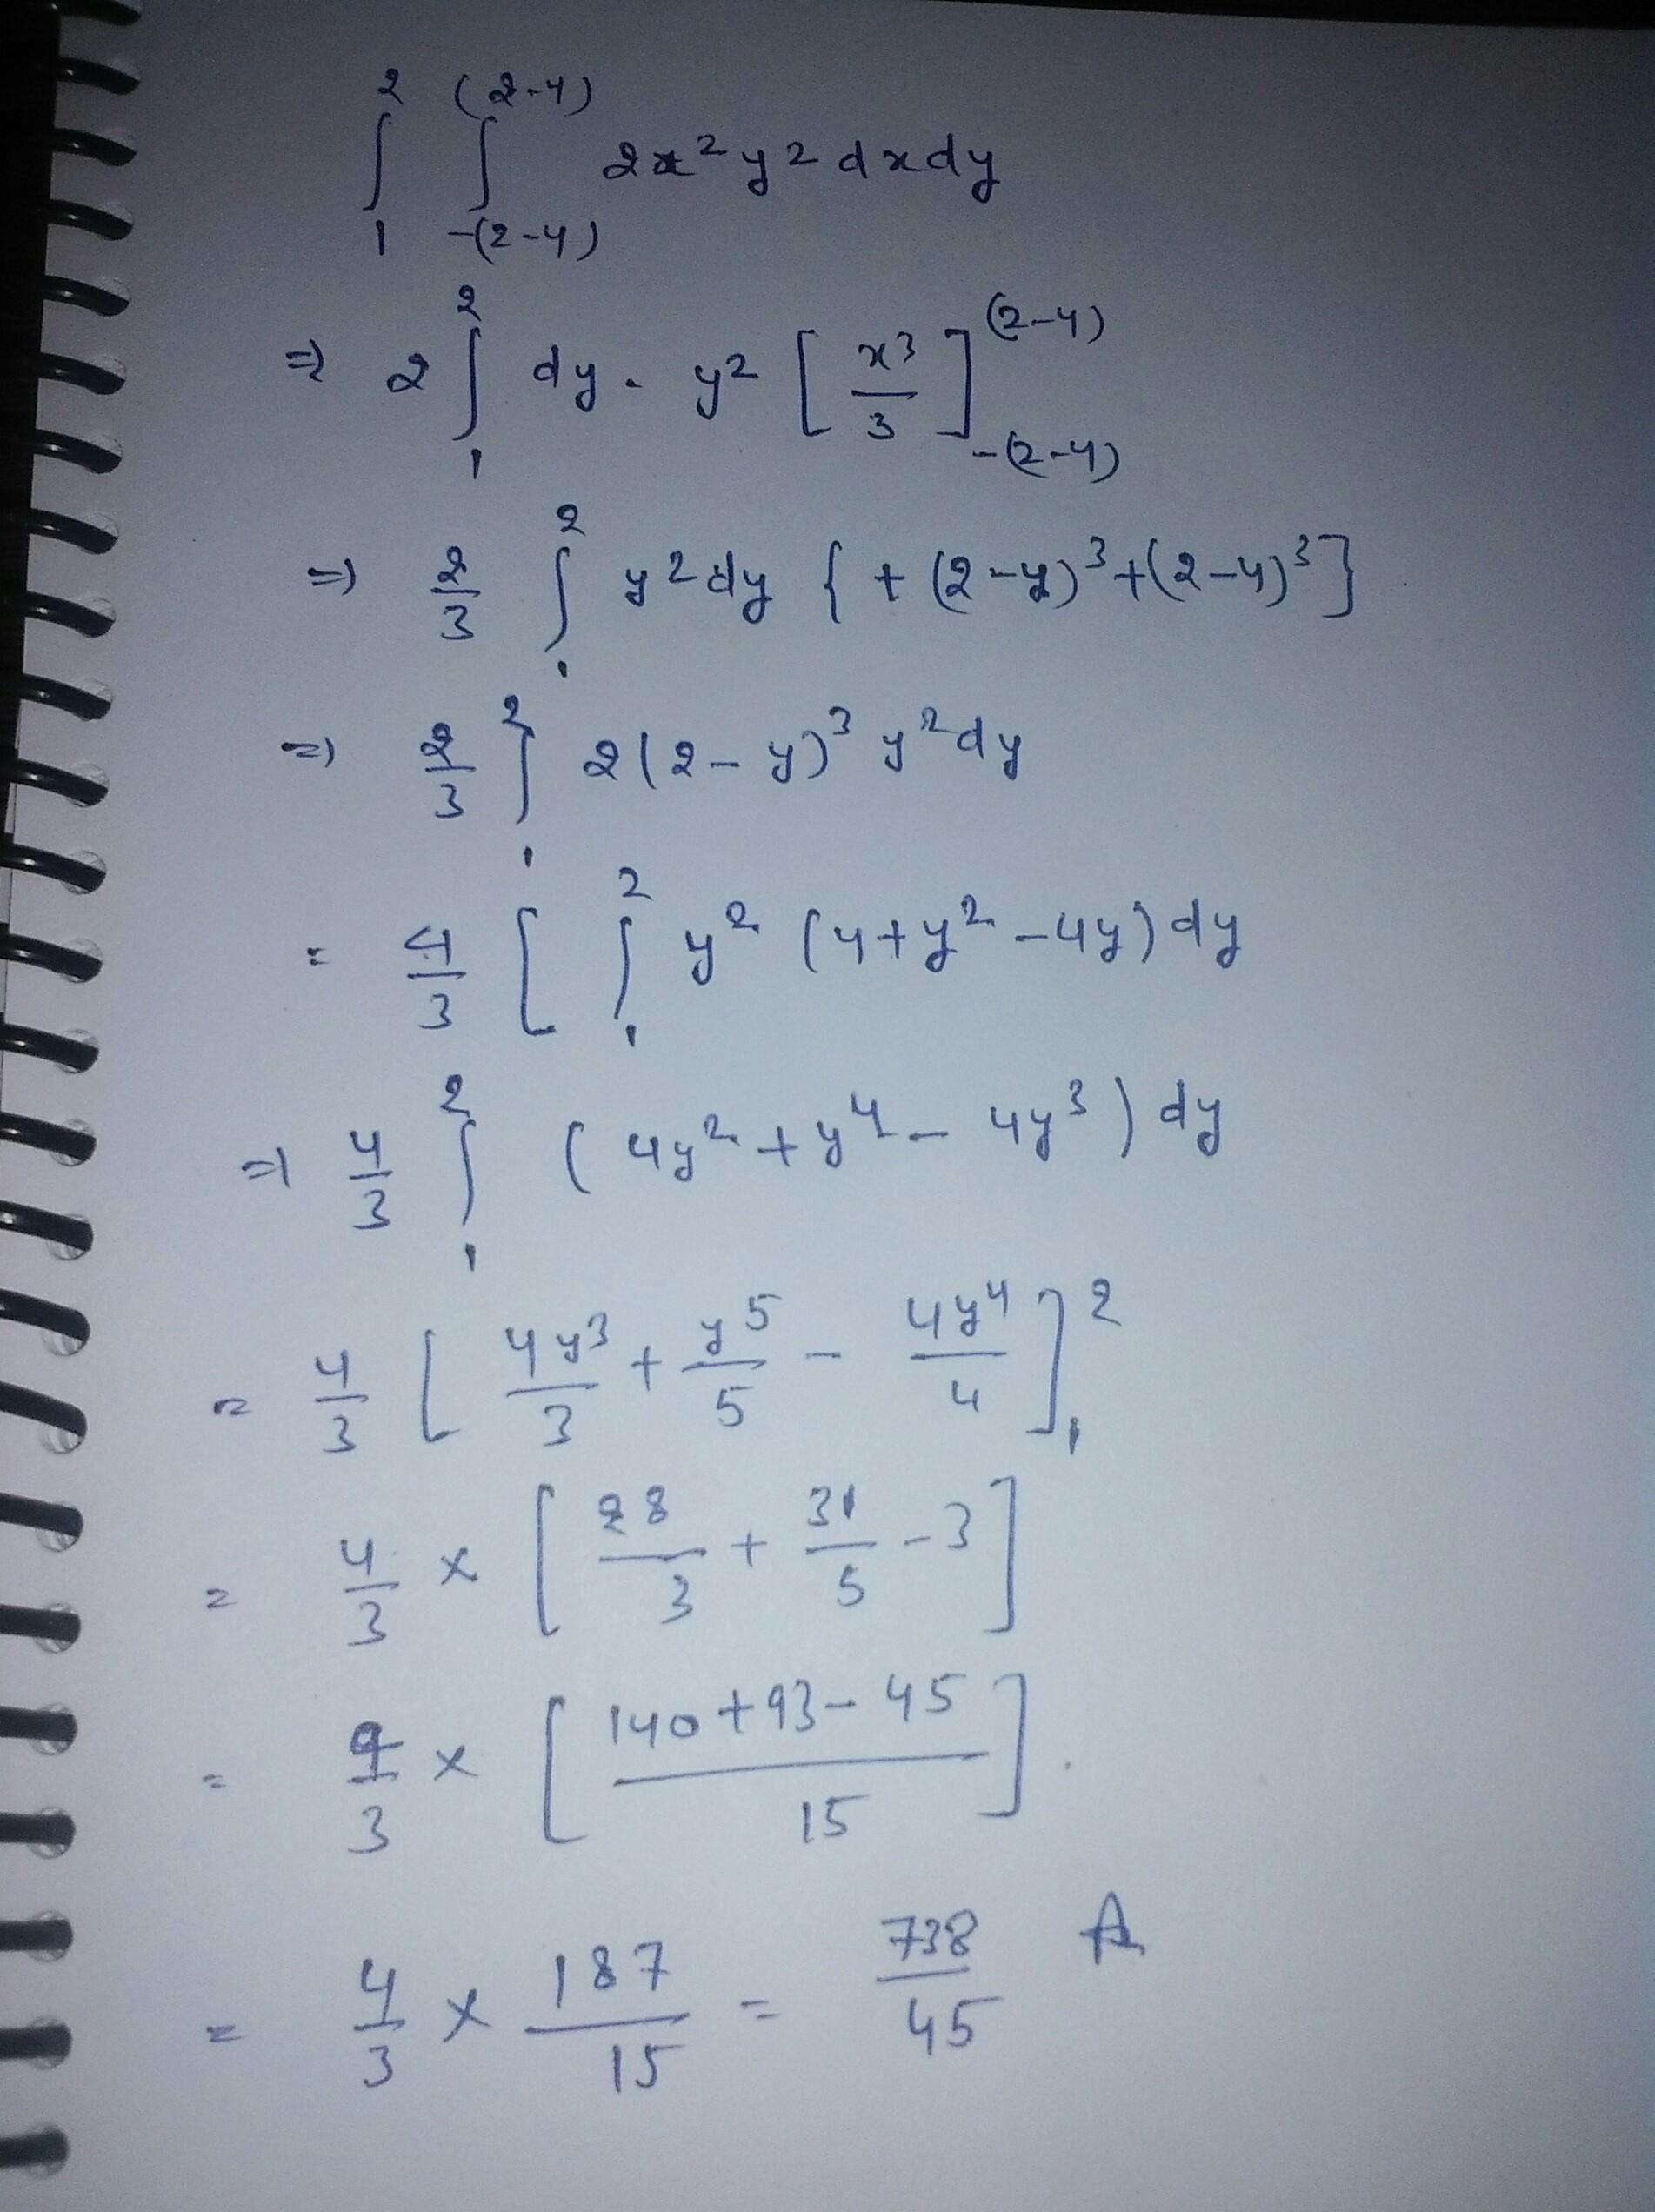 ∫₁² ∫₋₍₂₋y₎^(2-y) 2x²y² dxdy
⇒ 2 ∫₁² dy · y² [x³/3]₋₍₂₋y₎^(2-y)
⇒ 2/3 ∫₁² y² dy { + (2-y)³ + (2-y)³ }
⇒ 2/3 ∫₁² 2(2-y)³ y² dy
= 4/3 [ ∫₁² y² (4+y²-4y) dy
⇒ 4/3 ∫₁² (4y² + y⁴ - 4y³) dy
= 4/3 [ 4y³/3 + y⁵/5 - 4y⁴/4 ]₁²
= 4/3 × [ 28/3 + 31/5 - 3 ]
= 4/3 × [ 140+93-45 / 15 ].
= 4/3 × 187/15 = 738/45